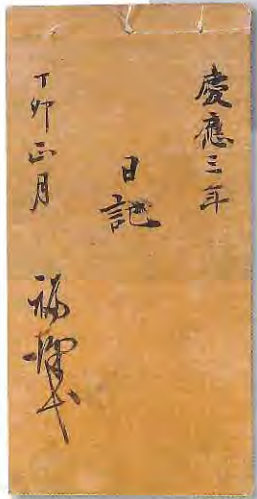 慶應三年
日記
丁卯正月
福澤氏